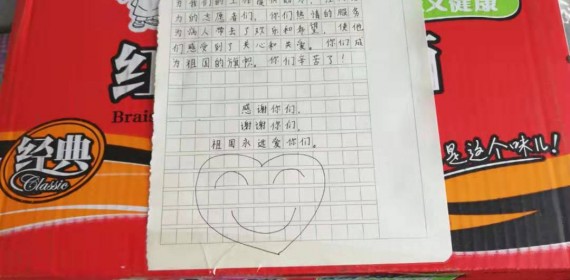 为的志愿者们，你们热情的服务
为病人带去了欢乐和希望，使他
们感受到了关心和关爱。你们成
为祖国的旗帜。你们辛苦了！
感谢你们。
谢谢你们。
祖国永远爱你们。
健康
红
Brai
经典
Classic
是这个味儿！